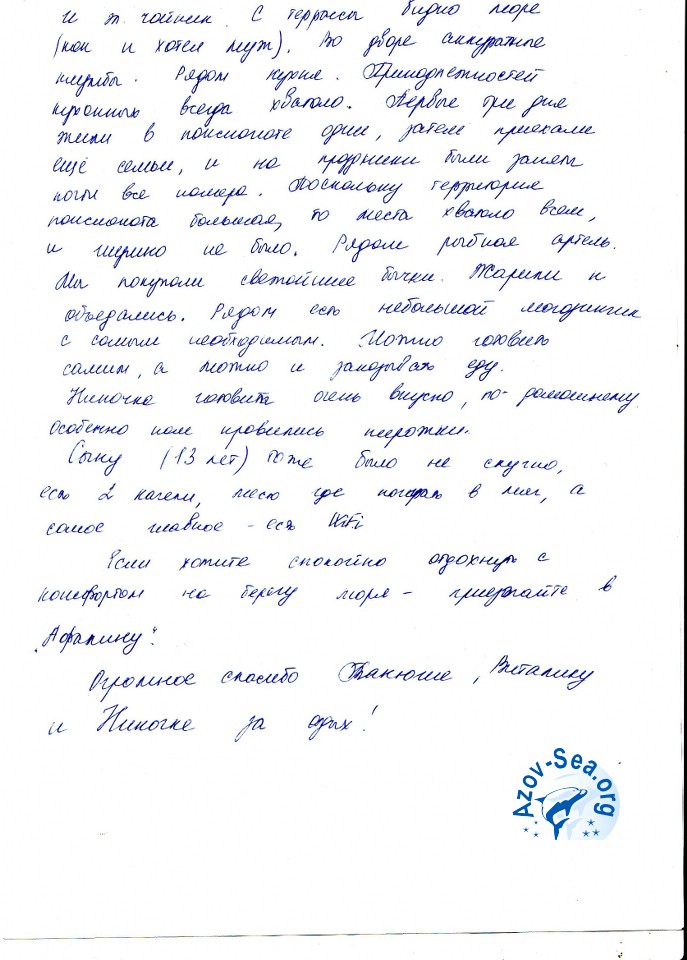 и эл. чайник. С террасы видно море
(как и хотел муж). Во дворе аккуратные
клумбы. Рядом кухня. Принадлежностей
кухонных всегда хватало. Первые три дня
жили в пансионате одни, затем приехали
ещё семьи, и на праздники были заняты
почти все номера. Поскольку территория
пансионата большая, то места хватало всем,
и шумно не было. Рядом рыбная артель.
Мы покупали свежайшие бычки. Жарили и
объедались. Рядом есть небольшой магазинчик
с самым необходимым. Можно готовить
самим, а можно и заказывать еду.
Ниночка готовит очень вкусно, по-домашнему.
Особенно нам нравились пирожки.
Сыну (13 лет) тоже было не скучно,
есть 2 качели, место где поиграть в мяч, а
самое главное - есть WiFi
Если хотите спокойно отдохнуть с
комфортом на берегу моря - приезжайте в
"Афалину".
Огромное спасибо Танюше, Виталику
и Ниночке за отдых!
Azov-Sea.org